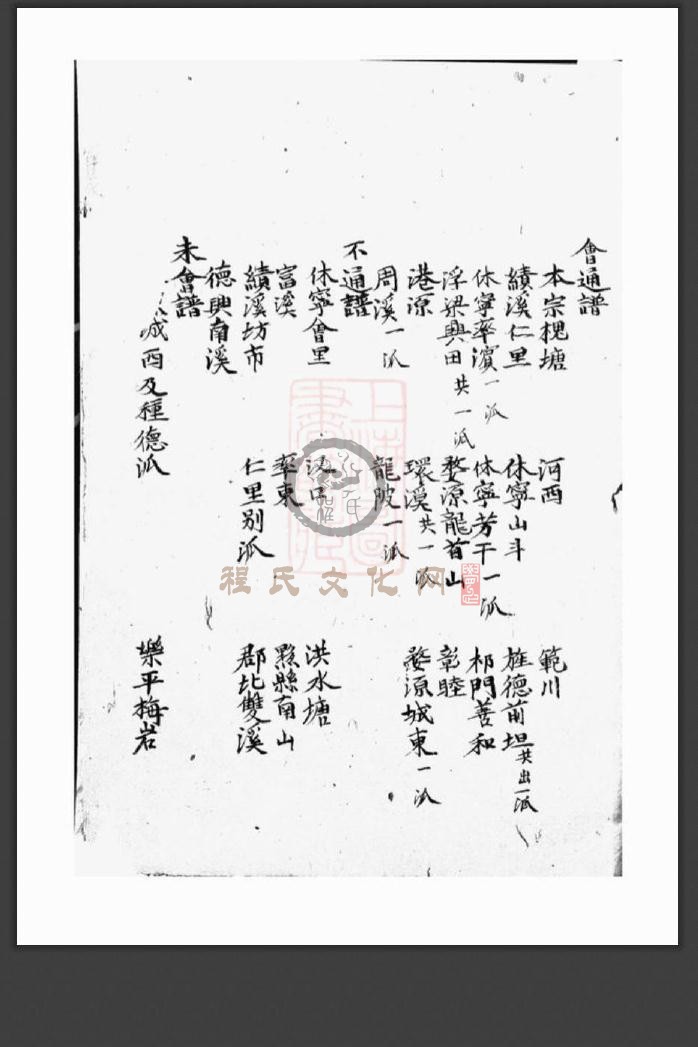 會通譜
本宗槐塘 河西 範川
績溪仁里 休寧山斗 旌德前坦共出一派
休寧率濱一派 休寧芳干一派 祁門善和
浮梁興田共一派 婺源龍首山 彰睦
港源 環溪共一派 婺源城東一派
周溪一派 龍陂一派
不通譜
休寧會里 汊口 洪水塘
富溪 率東 黟縣南山
績溪坊市 仁里別派 郡北雙溪
德興南溪
未會譜
城西及種德派 樂平梅岩
程氏文化网